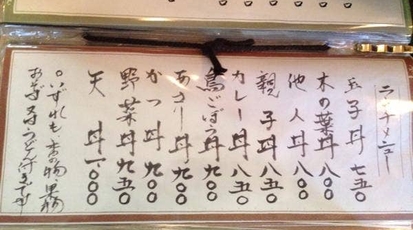 ランチメニュー
玉子丼 七五〇
木の葉丼 八〇〇
他人丼 八〇〇
親子丼 八五〇
カレー丼 八五〇
鳥ごぼう丼 九〇〇
あさり丼 九〇〇
かつ丼 九〇〇
野菜丼 九五〇
天丼 一〇〇〇
○いずれも